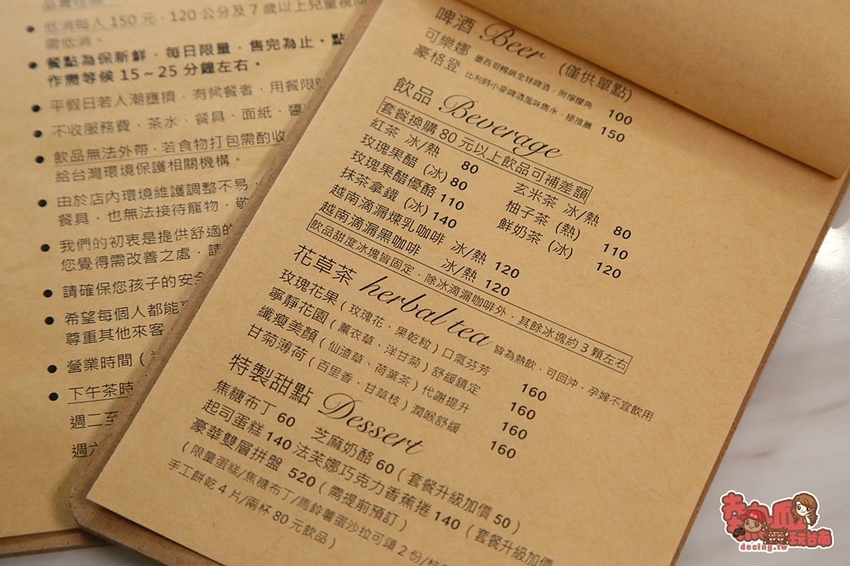 低消每人 150 元，120 公分及 7 歲以上兒童視同
需低消。
餐點為保新鮮，每日限量，售完為止。點
作需等候 15~25 分鐘左右。
平假日若人潮壅擠，有候餐者，用餐限
不收服務費，茶水、餐具、面紙、醬
飲品無法外帶，若食物打包需酌收
給台灣環境保護相關機構。
由於店內環境維護調整不易，
餐具，也無法接待寵物，敬
我們的初衷是提供舒適的
您覺得需改善之處，請
請確保您孩子的安全
希望每個人都能
尊重其他來客
營業時間
下午茶時
週二至
週六
啤酒 Beer (僅供單點)
可樂娜 墨西哥暢銷全球啤酒，附檸檬角 100
豪格登 比利時小麥啤酒風味雋永，極推薦 150
飲品 Beverage
套餐換購 80 元以上飲品可補差額
紅茶 冰/熱 80
玄米茶 冰/熱 80
玫瑰果醋 (冰) 80
柚子茶 (熱) 110
玫瑰果醋優酪 110
鮮奶茶 (冰) 120
抹茶拿鐵 (冰) 140
越南滴漏煉乳咖啡 冰/熱 120
越南滴漏黑咖啡 冰/熱 120
飲品甜度冰塊皆固定，除冰滴漏咖啡外，其餘冰塊約 3 顆左右
花草茶 herbal tea 皆為熱飲，可回沖，孕婦不宜飲用
玫瑰花果 (玫瑰花、果乾粒) 口氣芬芳 160
寧靜花園 (薰衣草、洋甘菊) 舒緩鎮定 160
纖瘦美顏 (仙渣草、荷葉茶) 代謝提升 160
甘菊薄荷 (百里香、甘草枝) 潤喉舒緩 160
特製甜點 Dessert
焦糖布丁 60 芝麻奶酪 60 (套餐升級加價 50)
起司蛋糕 140 法芙娜巧克力香蕉捲 140 (套餐升級加價
豪華雙層拼盤 520 (需提前預訂)
(限量蛋糕/焦糖布丁/馬鈴薯蛋沙拉可頌 2 份/
手工餅乾 4 片/兩杯 80 元飲品)
熱血玩台南
decing.tw